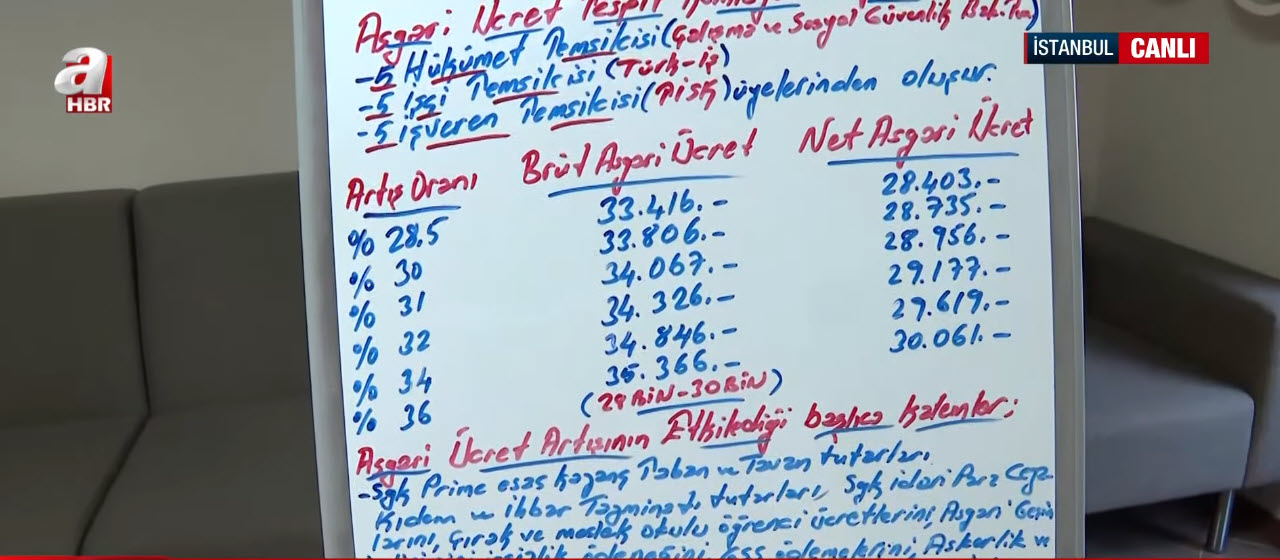 Asgari Ücret Tespit
-5 Hükümet Temsilcisi (Çalışma ve Sosyal Güvenlik Bak.
-5 işçi Temsilcisi (Türk-iş)
-5 işveren Temsilcisi (TİSK) üyelerinden oluşur.
Artış Oranı Brüt Asgari Ücret Net Asgari Ücret
% 28.5 33.416.- 28.403.-
% 30 33.806.- 28.735.-
% 31 34.067.- 28.956.-
% 32 34.326.- 29.177.-
% 34 34.846.- 29.619.-
% 36 35.366.- 30.061.-
(29 BiN-30BiN)
Asgari Ücret Artışının Etkilediği başlıca kalemler;
-Sgk Prime esas kazanç Taban ve Tavan tutarları,
Kıdem ve ihbar Tazminatı tutarları, Sgk idari Para Ceza
larını, Çırak ve meslek okulu öğrenci ücretlerini, Asgari Geçim
işsizlik ödeneğini, GSS ödemelerini, Askerlik ve
a
HBR
İSTANBUL CANLI